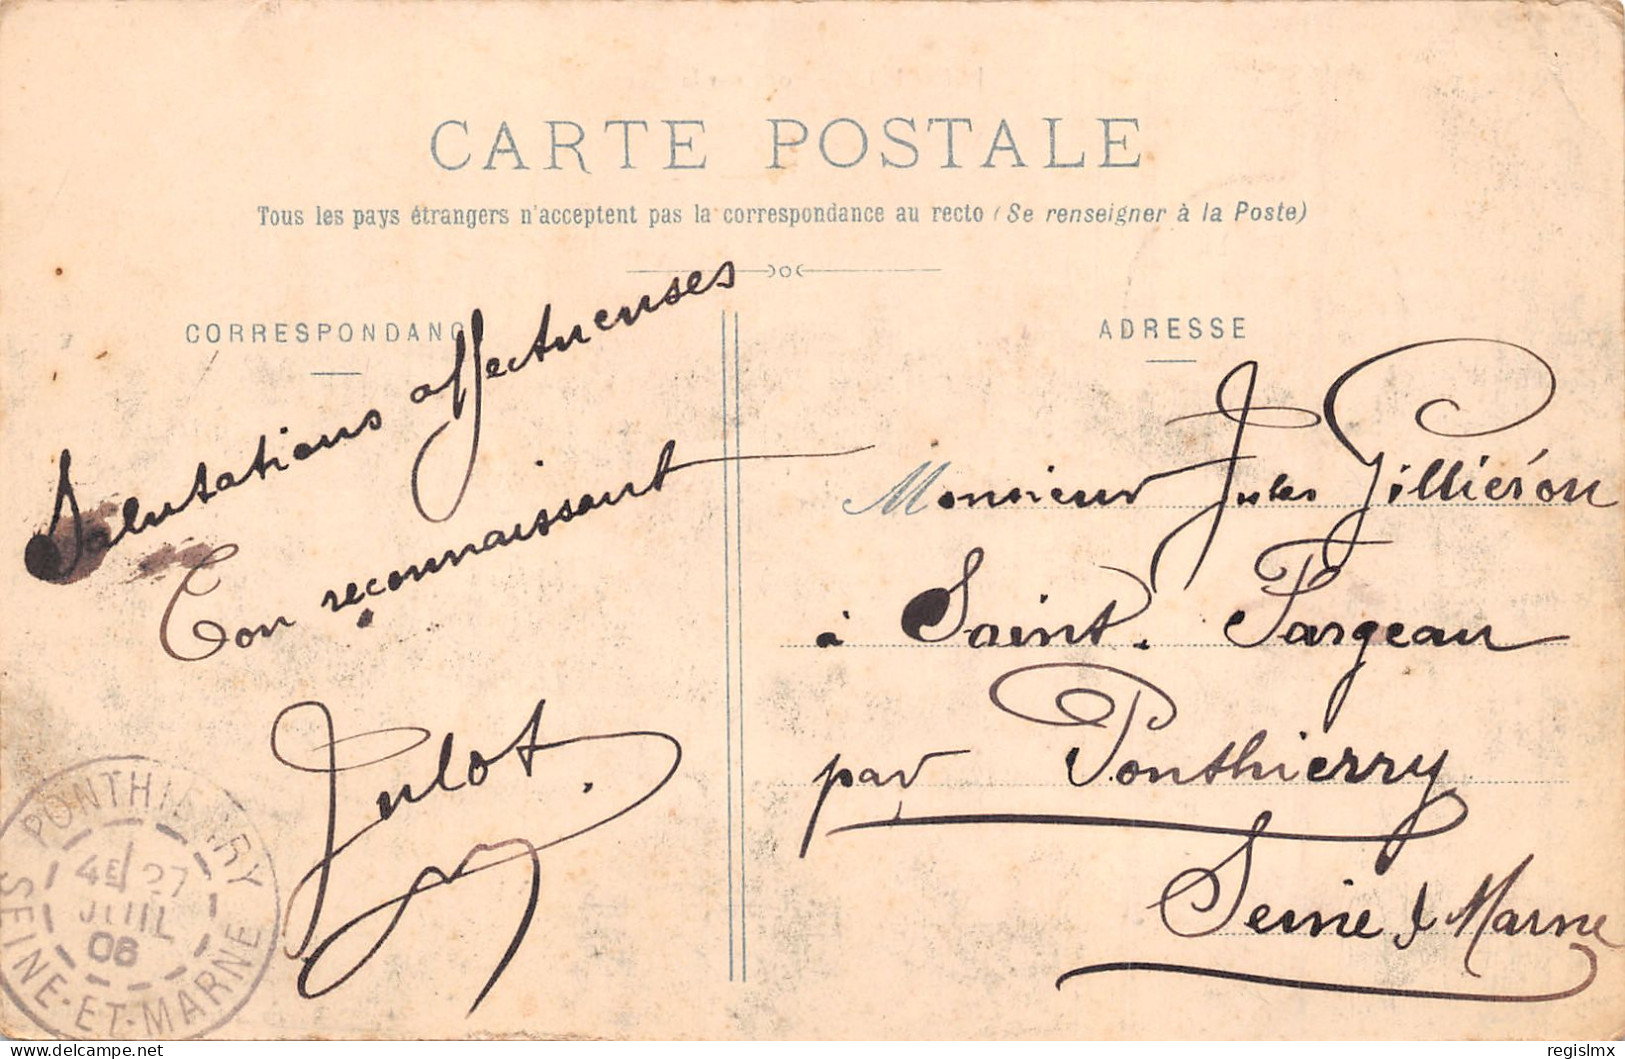 CARTE POSTALE
Tous les pays étrangers n'acceptent pas la correspondance au recto (Se renseigner à la Poste)
CORRESPONDANC
Salutations affectueuses
Ton reconnaissant
Julot.
ADRESSE
Monsieur Jules Gilliéron
à Saint. Fargeau
par Ponthierry
Seine & Marne
PONTHIERRY
4E 27
JUIL
06
SEINE-ET-MARNE
regislmx